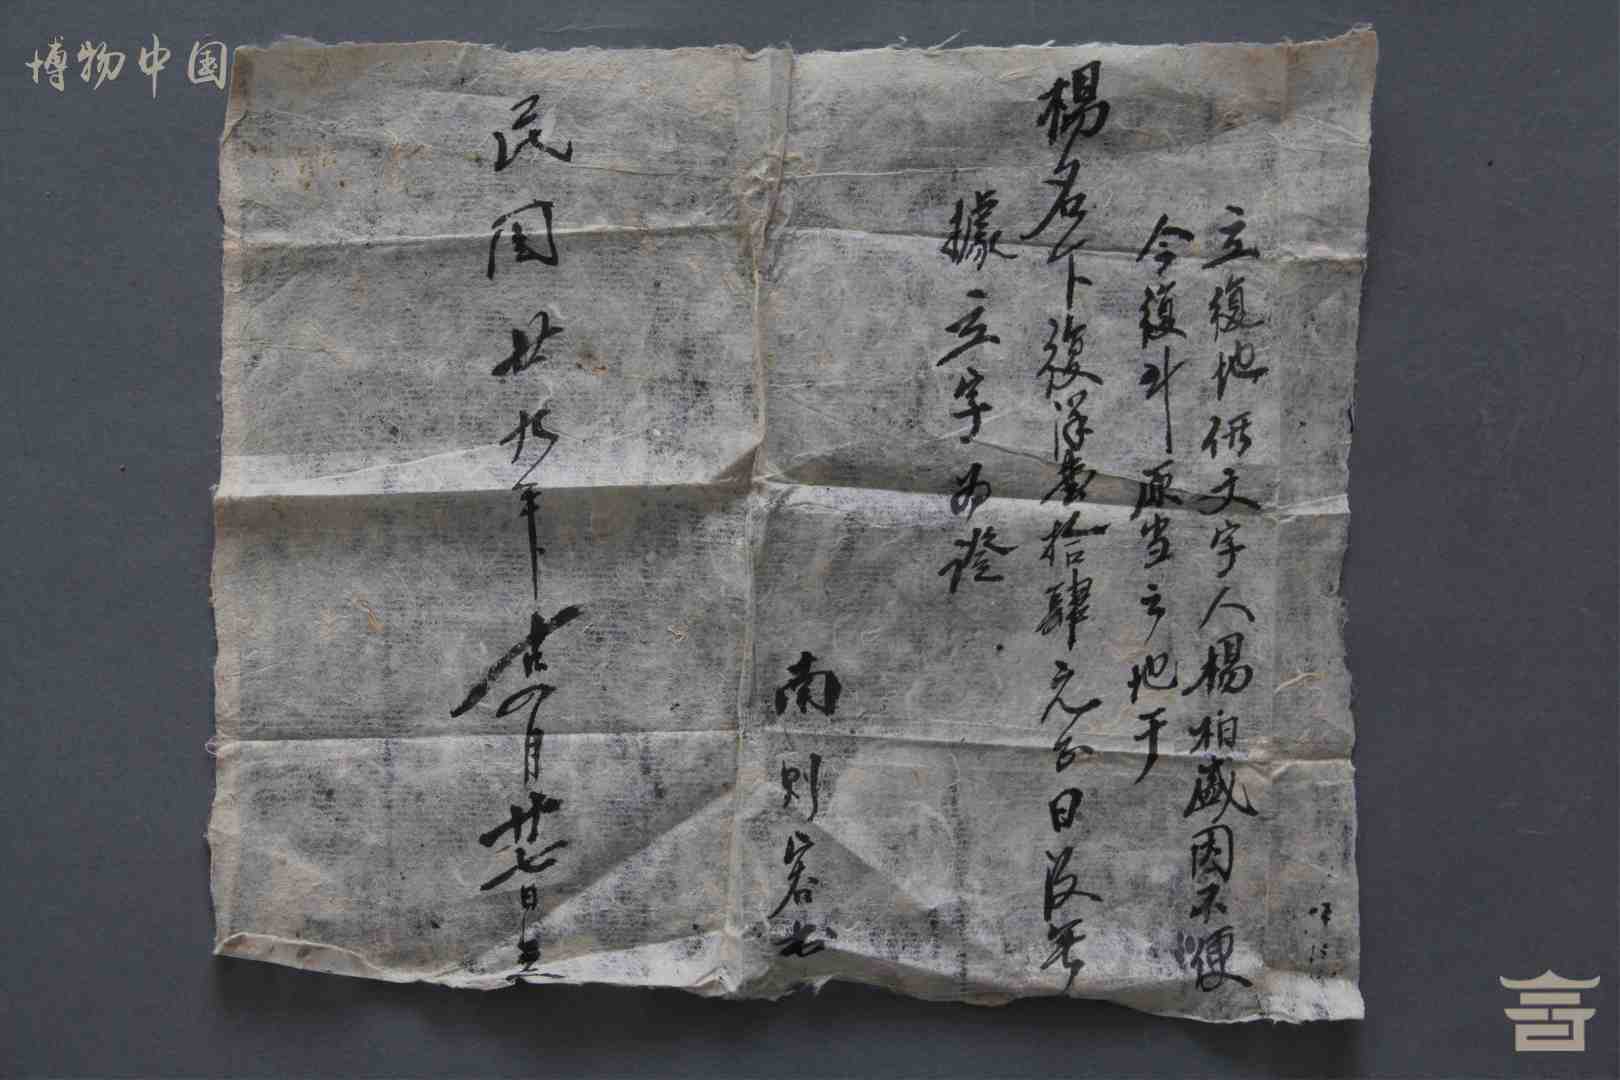 博物中国
立復地價文字人楊柏盛因不便
今復到原当之地于
楊名下復洋叁拾肆元 日後無
據立字為證
南則 书
民国廿九年 四月廿七日立